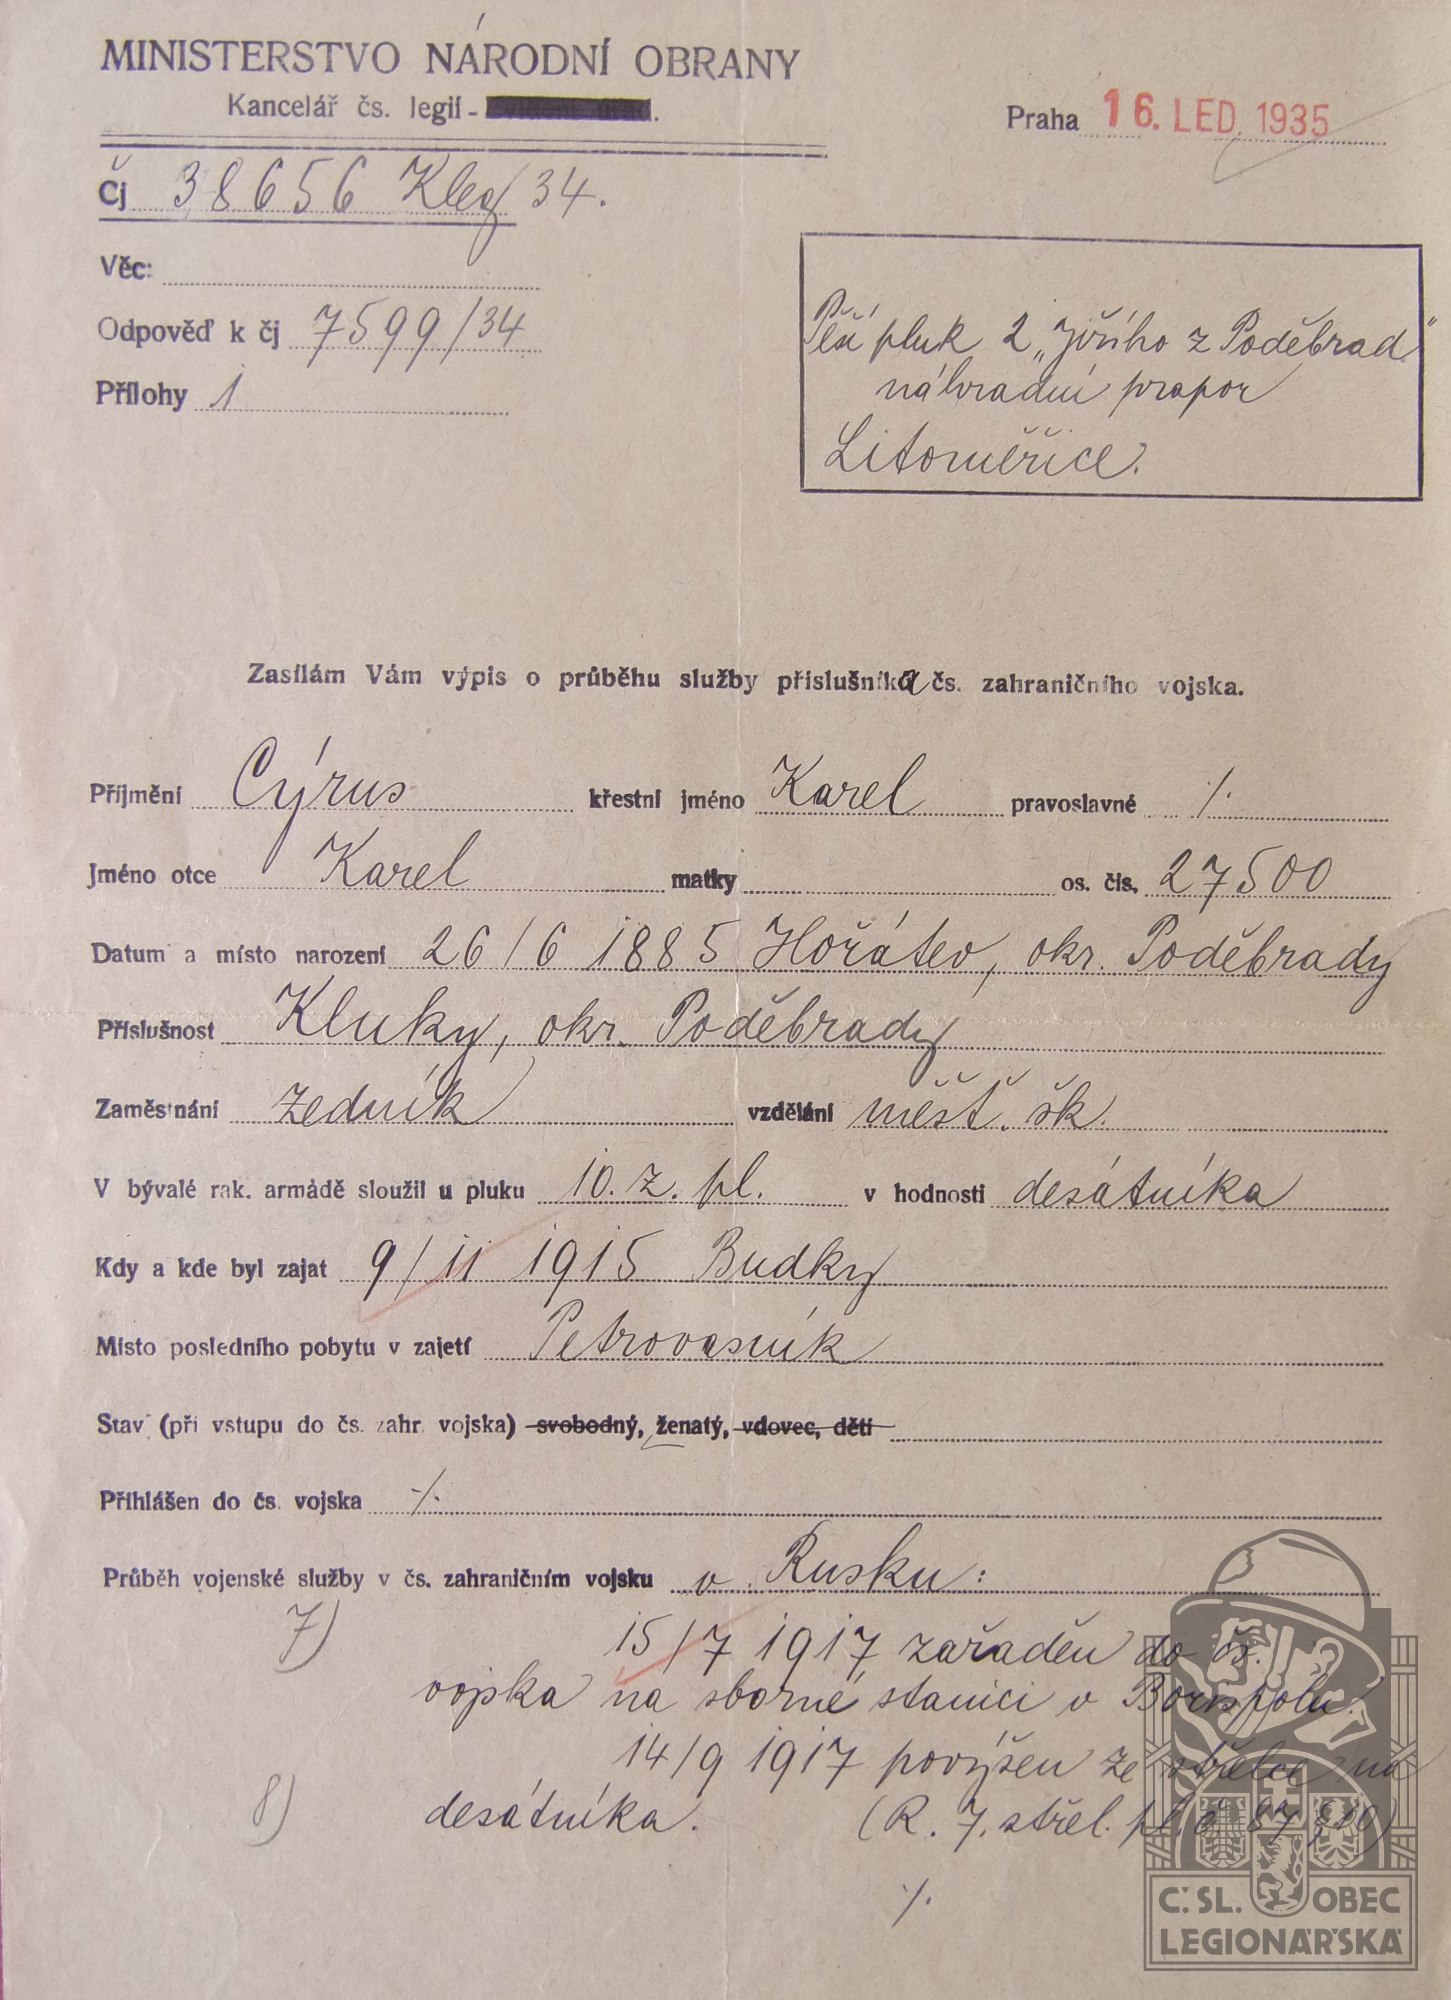 MINISTERSTVO NÁRODNÍ OBRANY
Kancelář čs. legií -
Praha 16. LED. 1935
Čj 38656 Kleg 34.
Věc:
Odpověď k čj 7599/34
Přílohy 1
Pěší pluk 2 „Jiřího z Poděbrad"
náhradní prapor
Litoměřice.
Zasílám Vám výpis o průběhu služby příslušníka čs. zahraničního vojska.
Příjmění Cýrus křestní jméno Karel pravoslavné ·/·
Jméno otce Karel matky os. čís. 27500
Datum a místo narození 26/6 1885 Hořátev, okr. Poděbrady
Příslušnost Kluky, okr. Poděbrady
Zaměstnání zedník vzdělání měšť. šk.
V bývalé rak. armádě sloužil u pluku 10. z. pl. v hodnosti desátníka
Kdy a kde byl zajat 9/11 1915 Budky
Místo posledního pobytu v zajetí Petrovasník
Stav (při vstupu do čs. zahr. vojska) svobodný, ženatý, vdovec, děti
Přihlášen do čs. vojska ·/·
Průběh vojenské služby v čs. zahraničním vojsku v Rusku:
7) 15/7 1917 zařaděn do čs.
vojska na sborné stanici v Borispolu.
14/9 1917 povýšen ze střelce na
8) desátníka. (R. 7. střel. pl. č 87 § 10)
·/·
Č. SL. OBEC
LEGIONÁŘSKÁ